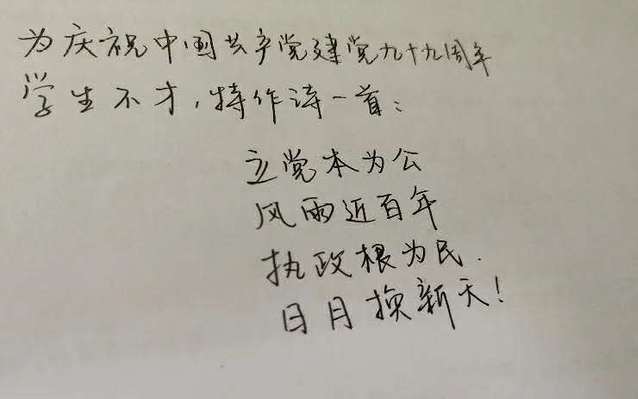 为庆祝中国共产党建党九十九周年
学生不才，特作诗一首：
立党本为公
风雨近百年
执政根为民.
日月换新天！